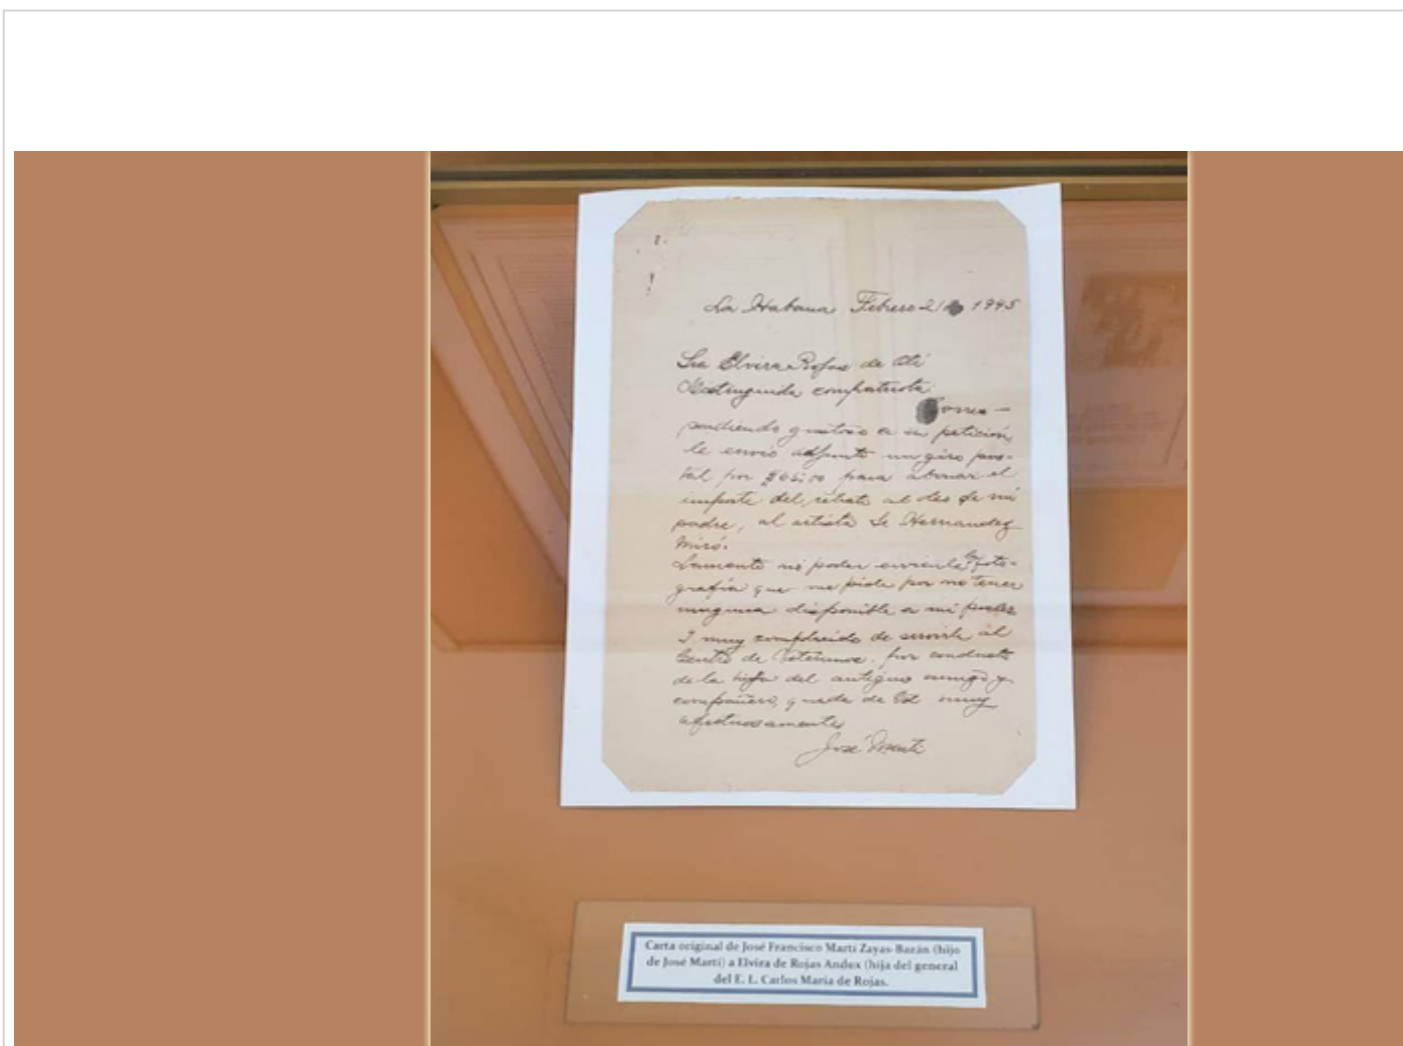 La Habana Febrero 21 1945
Sra Elvira Rojas de
Distinguida compatriota
Corres-
pondiendo gustoso a su petición
le envio adjunto un giro pos-
tal por para abonar el
importe del retrato al oleo de mi
padre, al artista Sr Hernandez
Miró.
Lamento no poder enviarle la foto-
grafía que me pide por no tener
ninguna disponible a mi poder
Y muy complacido de servirle al
Centro de Veteranos, por conducto
de la hija del antiguo amigo y
compañero, queda de Vd muy
afectuosamente
José Martí
Carta original de José Francisco Martí Zayas-Bazán (hijo
de José Martí) a Elvira de Rojas Andux (hija del general
del E. L. Carlos María de Rojas.